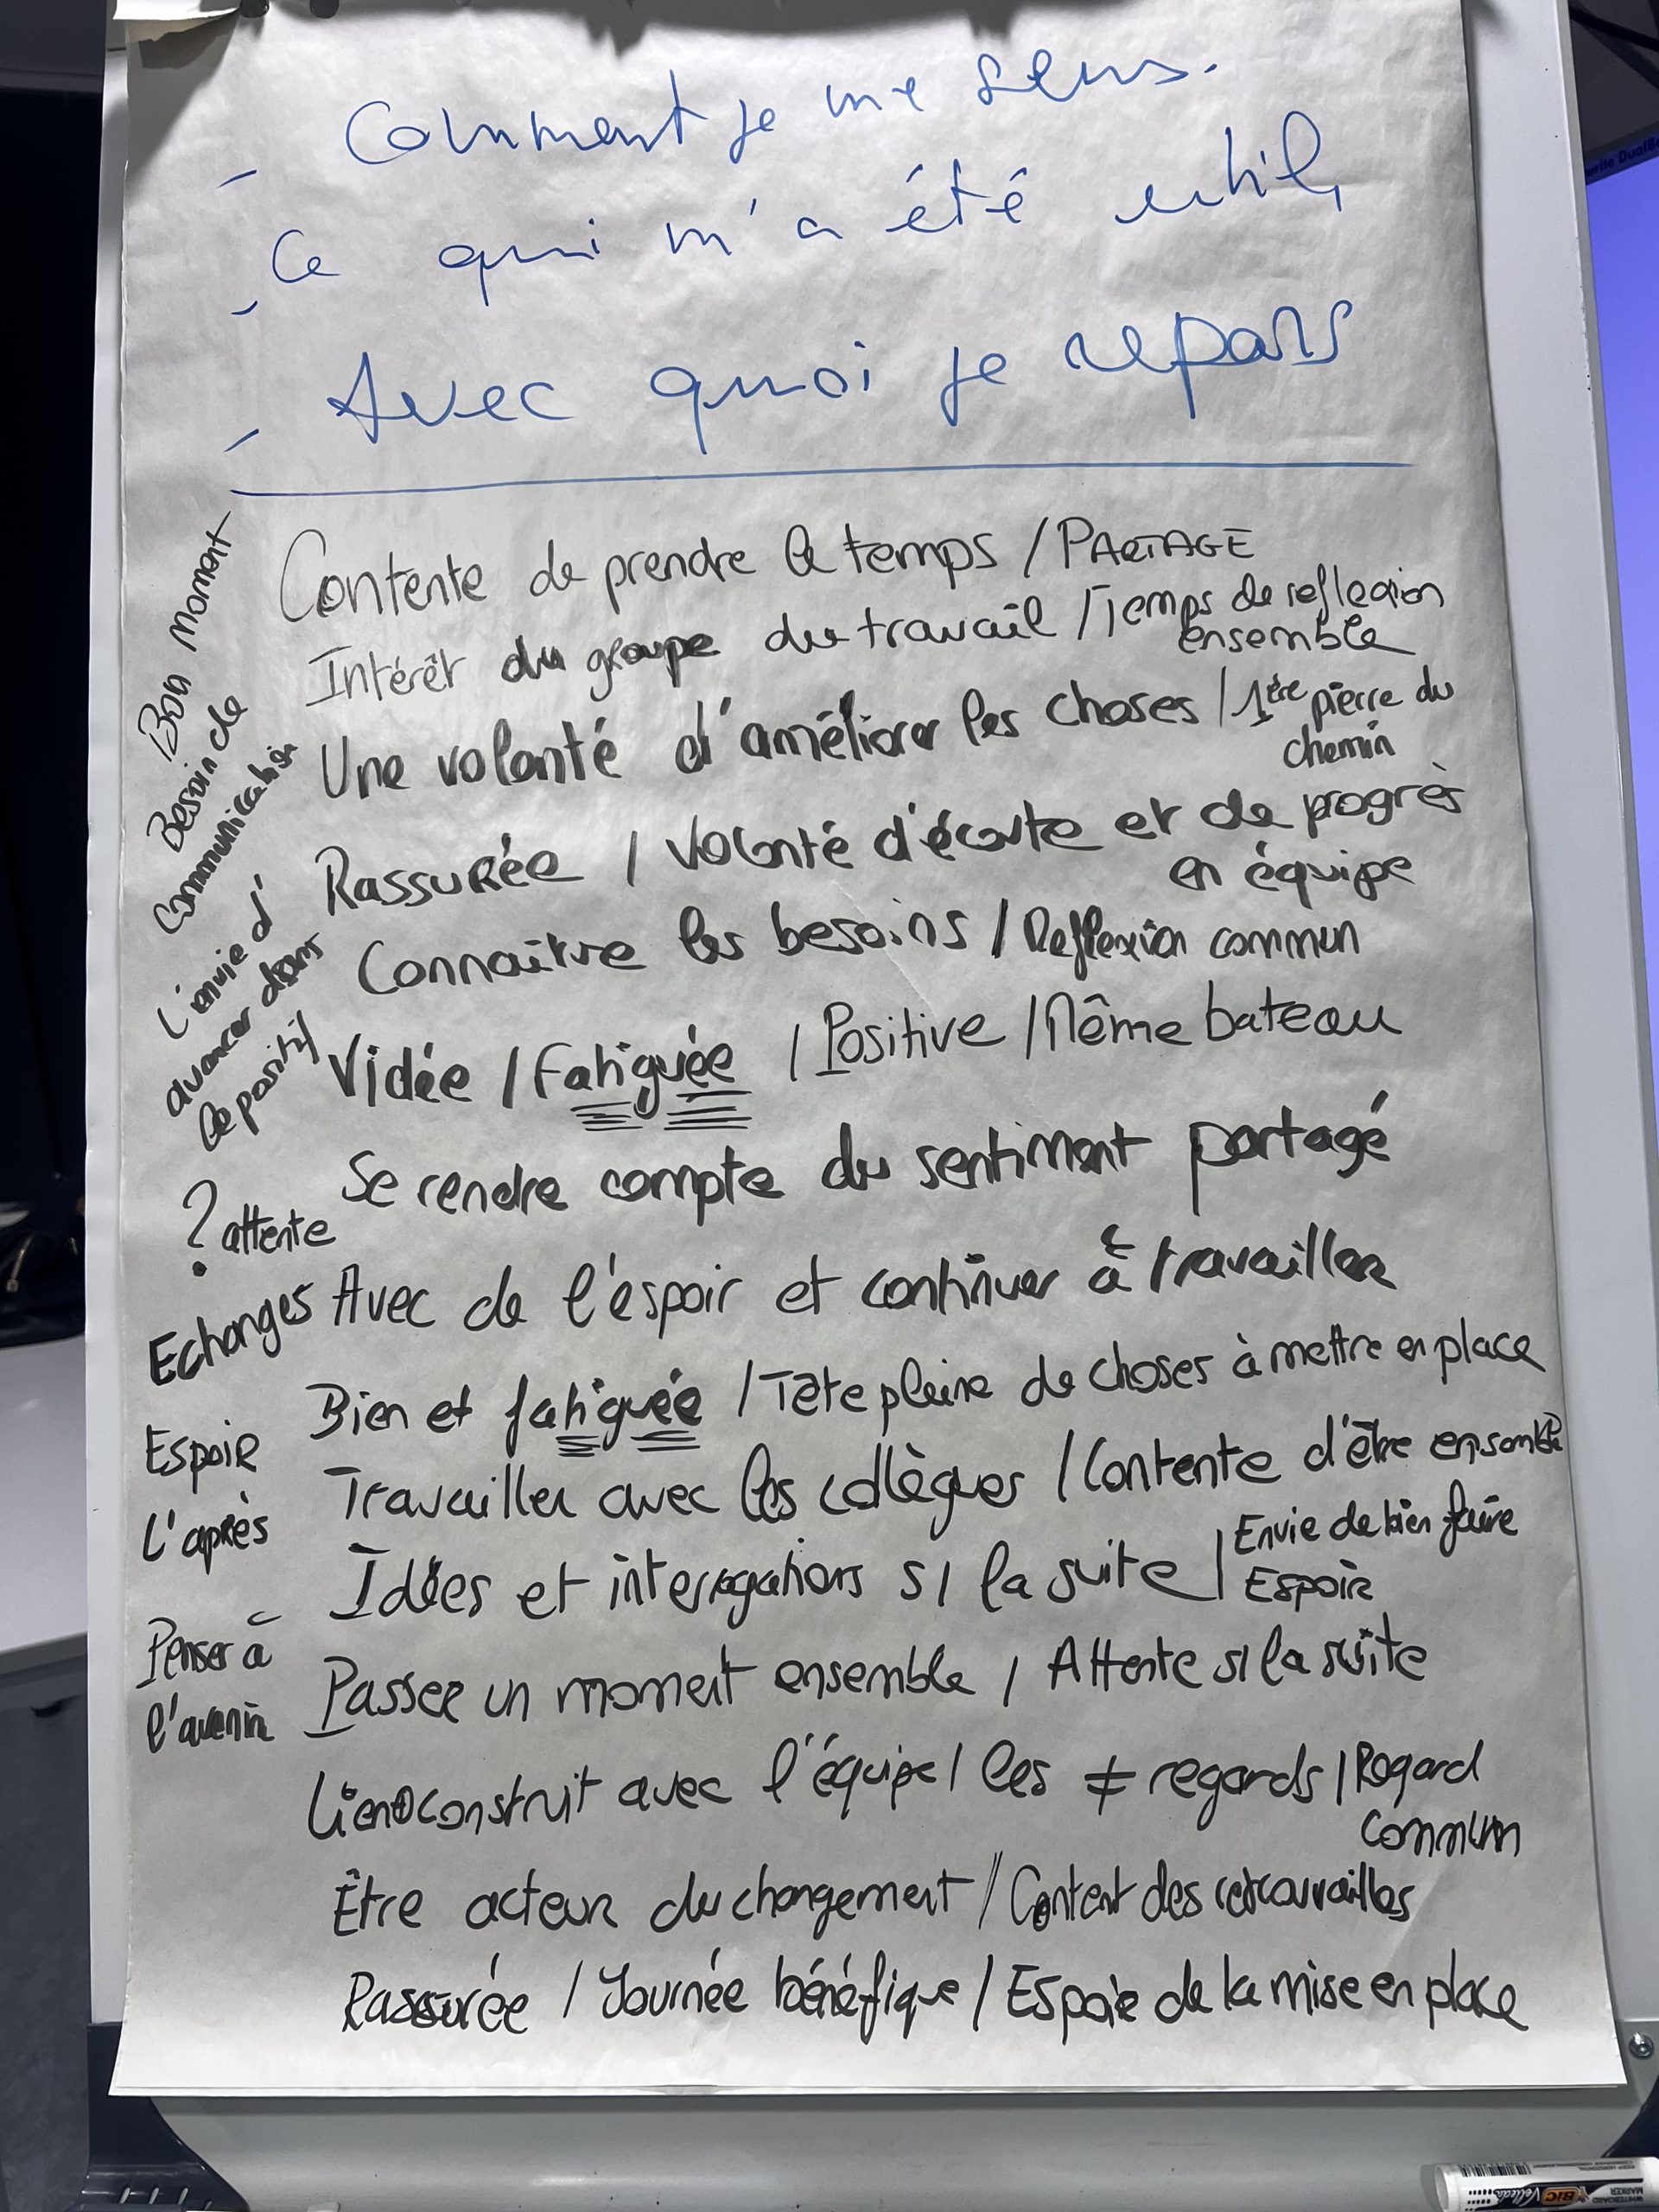 - Comment je me sens.
- Ce qui m'a été utile
- Avec quoi je repars
Contente de prendre le temps / PARTAGE
Intérêt du groupe du travail / Temps de reflexion
ensemble
Une volonté d'améliorer les choses / 1ère pierre du
chemin
Rassurée / Volonté d'écoute et de progrès
en équipe
Connaitre les besoins / Reflexion commun
Vidée / Fatiguée / Positive / Même bateau
Se rendre compte du sentiment partagé
Avec de l'espoir et continuer à travailler
Bien et fatiguée / Tête pleine de choses à mettre en place
Travailler avec les collègues / Contente d'être ensemble
Idées et interrogations s/ la suite / Envie de bien faire
Espoir
Passer un moment ensemble / Attente s/ la suite
Lien construit avec l'équipe / les ≠ regards / Regard
Commun
Être acteur du changement // Content des retrouvailles
Rassurée / Journée bénéfique / Espoir de la mise en place
Bon moment
Besoin de
communication
L'envie d'
avancer dans
le positif
? attente
Echanges
Espoir
L'après
Penser à
l'avenir
BIC Velleda
WHITEBOARD
MARKER